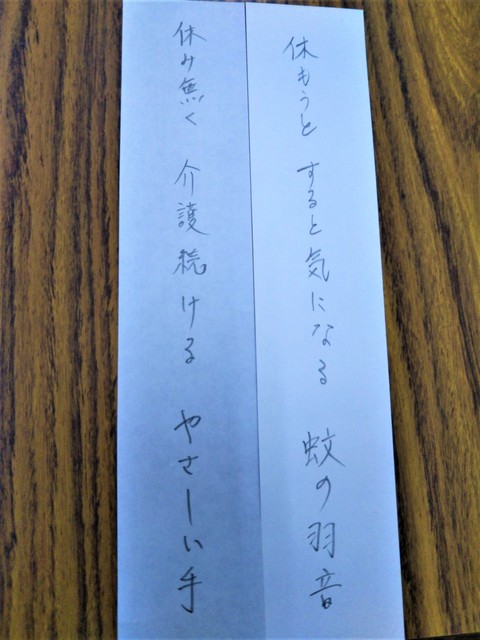 休もうと すると気になる 蚊の羽音
休み無く 介護続ける やさしい手